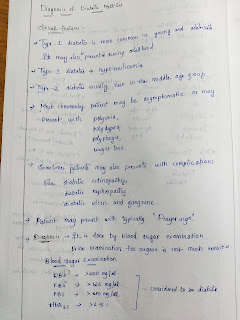 Diagnosis of Diabetes Mellitus
Clinical features
Type-1 diabetes is more common in young and
It may also present during adulthood.
Type-1 diabetes → hypoinsulinemia
Type-2 diabetes usually seen in the middle age group.
Most commonly patient may be asymptomatic or may
present with polyuria,
polydypsia,
polyphagia,
weight loss
Sometimes patients may also presents with complications
like diabetic retinopathy,
diabetic nephropathy
diabetic ulcers and gangrene.
Patient may present with typically "Prayer sign"
Diagnosis → It is done by blood sugar examination
Urine examination for sugars is not much sensitive
Blood sugar examination
RBS → >200 mg/dl
FBS → >126 mg/dl
PBS → >200 mg/dl
HbA1c → >6.5%
- considered to be diabetic